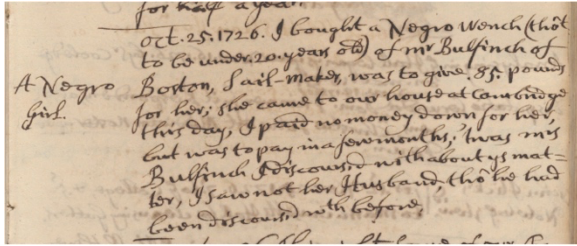 for half a year.
Oct. 25. 1726. I bought a Negro Wench (thôt
to be under 20. years old) of mr Bulfinch of
A Negro Boston, Sail-maker, was to give. 85. pounds
Girl. for her; she came to our house at Cambridge
this day, I paid no money down for her,
but was to pay in a few months; 'twas mrs
Bulfinch I discours'd with about ys mat-
ter, I saw not her Husband, thô he had
been discours'd wth before.